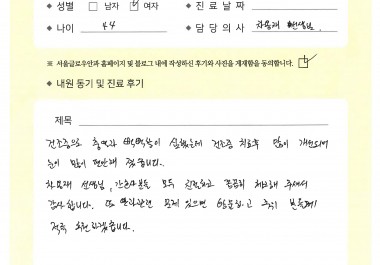 ◆ 성별 □ 남자 ☑ 여자 ◆ 진료날짜
◆ 나이 44 ◆ 담당의사 선생님
※ 서울글로우안과 홈페이지 및 블로그 내에 작성하신 후기와 사진을 게재함을 동의합니다. ☑
◆ 내원 동기 및 진료 후기
제목
건조증으로 충혈과 뻑뻑함이 심했는데 건조증 치료후 많이 개선되어
눈이 많이 편안해 졌습니다.
선생님, 간호사분들 모두 친절하고 꼼꼼히 체크해 주셔서
감사합니다. 또 안과관련 문제 있으면 방문하고 주위 분들께
적극 추천하겠습니다.